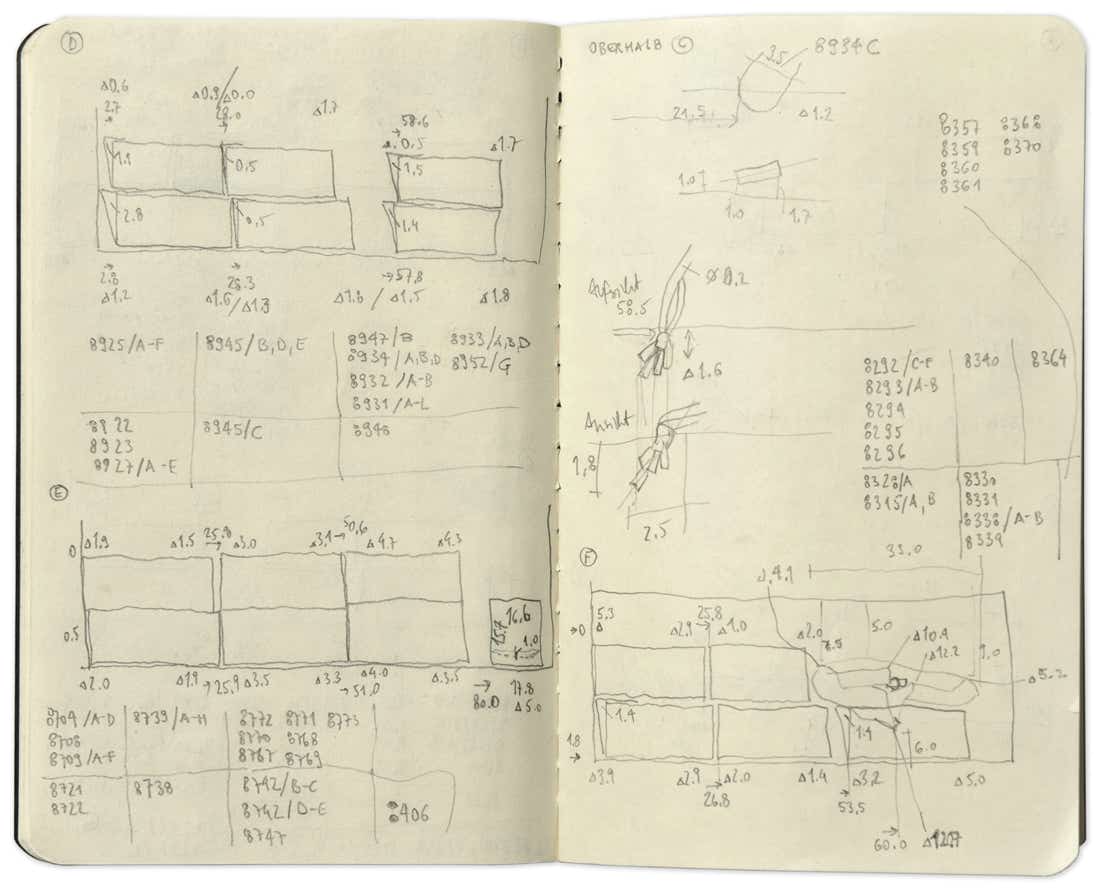 D
Δ0.6
2.7
Δ0.9/Δ0.0
28.0
Δ1.7
58.6
Δ1.7
0,5
1,5
2.8
0,5
1.4
2.8
Δ1.2
28.3
Δ1.6/Δ1.3
Δ1.6 / Δ1.5
57.8
Δ1.8
8925/A-F
8945/B,D,E
8947/B
8933/A,B,D
8934/A,B,D
8952/G
8932/A-B
8931/A-L
8922
8945/C
8923
8927/A-E
E
0
Δ1.9
Δ1.5
25.8
Δ3.0
Δ3.1
50,6
Δ4.7
Δ4.3
0.5
16,6
15,7
1.0
Δ2.0
Δ1.9
25.9
Δ3.5
Δ3.3
51.0
Δ4.0
Δ3.5
80.0
17.8
Δ5.0
8709/A-D
8739/A-H
8772 8771 8773
8708
8770 8768
8709/A-F
8767 8769
8721
8738
8742/B-C
8722
8742/D-E
8406
8747
OBERHALB C
3.5
8934C
21,5
Δ1.2
8357 8368
8359 8370
8360
8361
1.0
1.0
1.7
Aufsicht
58.5
Ø 0.2
Δ1.6
8292/C-F
8340
8364
8293/A-B
8294
8295
8296
Ansicht
1,8
2.5
8328/A
8330
8315/A,B
8331
8338/A-B
8339
F
33.0
Δ4.1
5.3
Δ
0
Δ2.9
25.8
Δ1.0
Δ2.0
7.5
5.0
Δ10.4
Δ12.2
Δ5.2
1.4
1.4
6.0
1.8
Δ3.9
Δ2.9
26.8
Δ2.0
Δ1.4
53,5
Δ3.2
Δ5.0
60.0